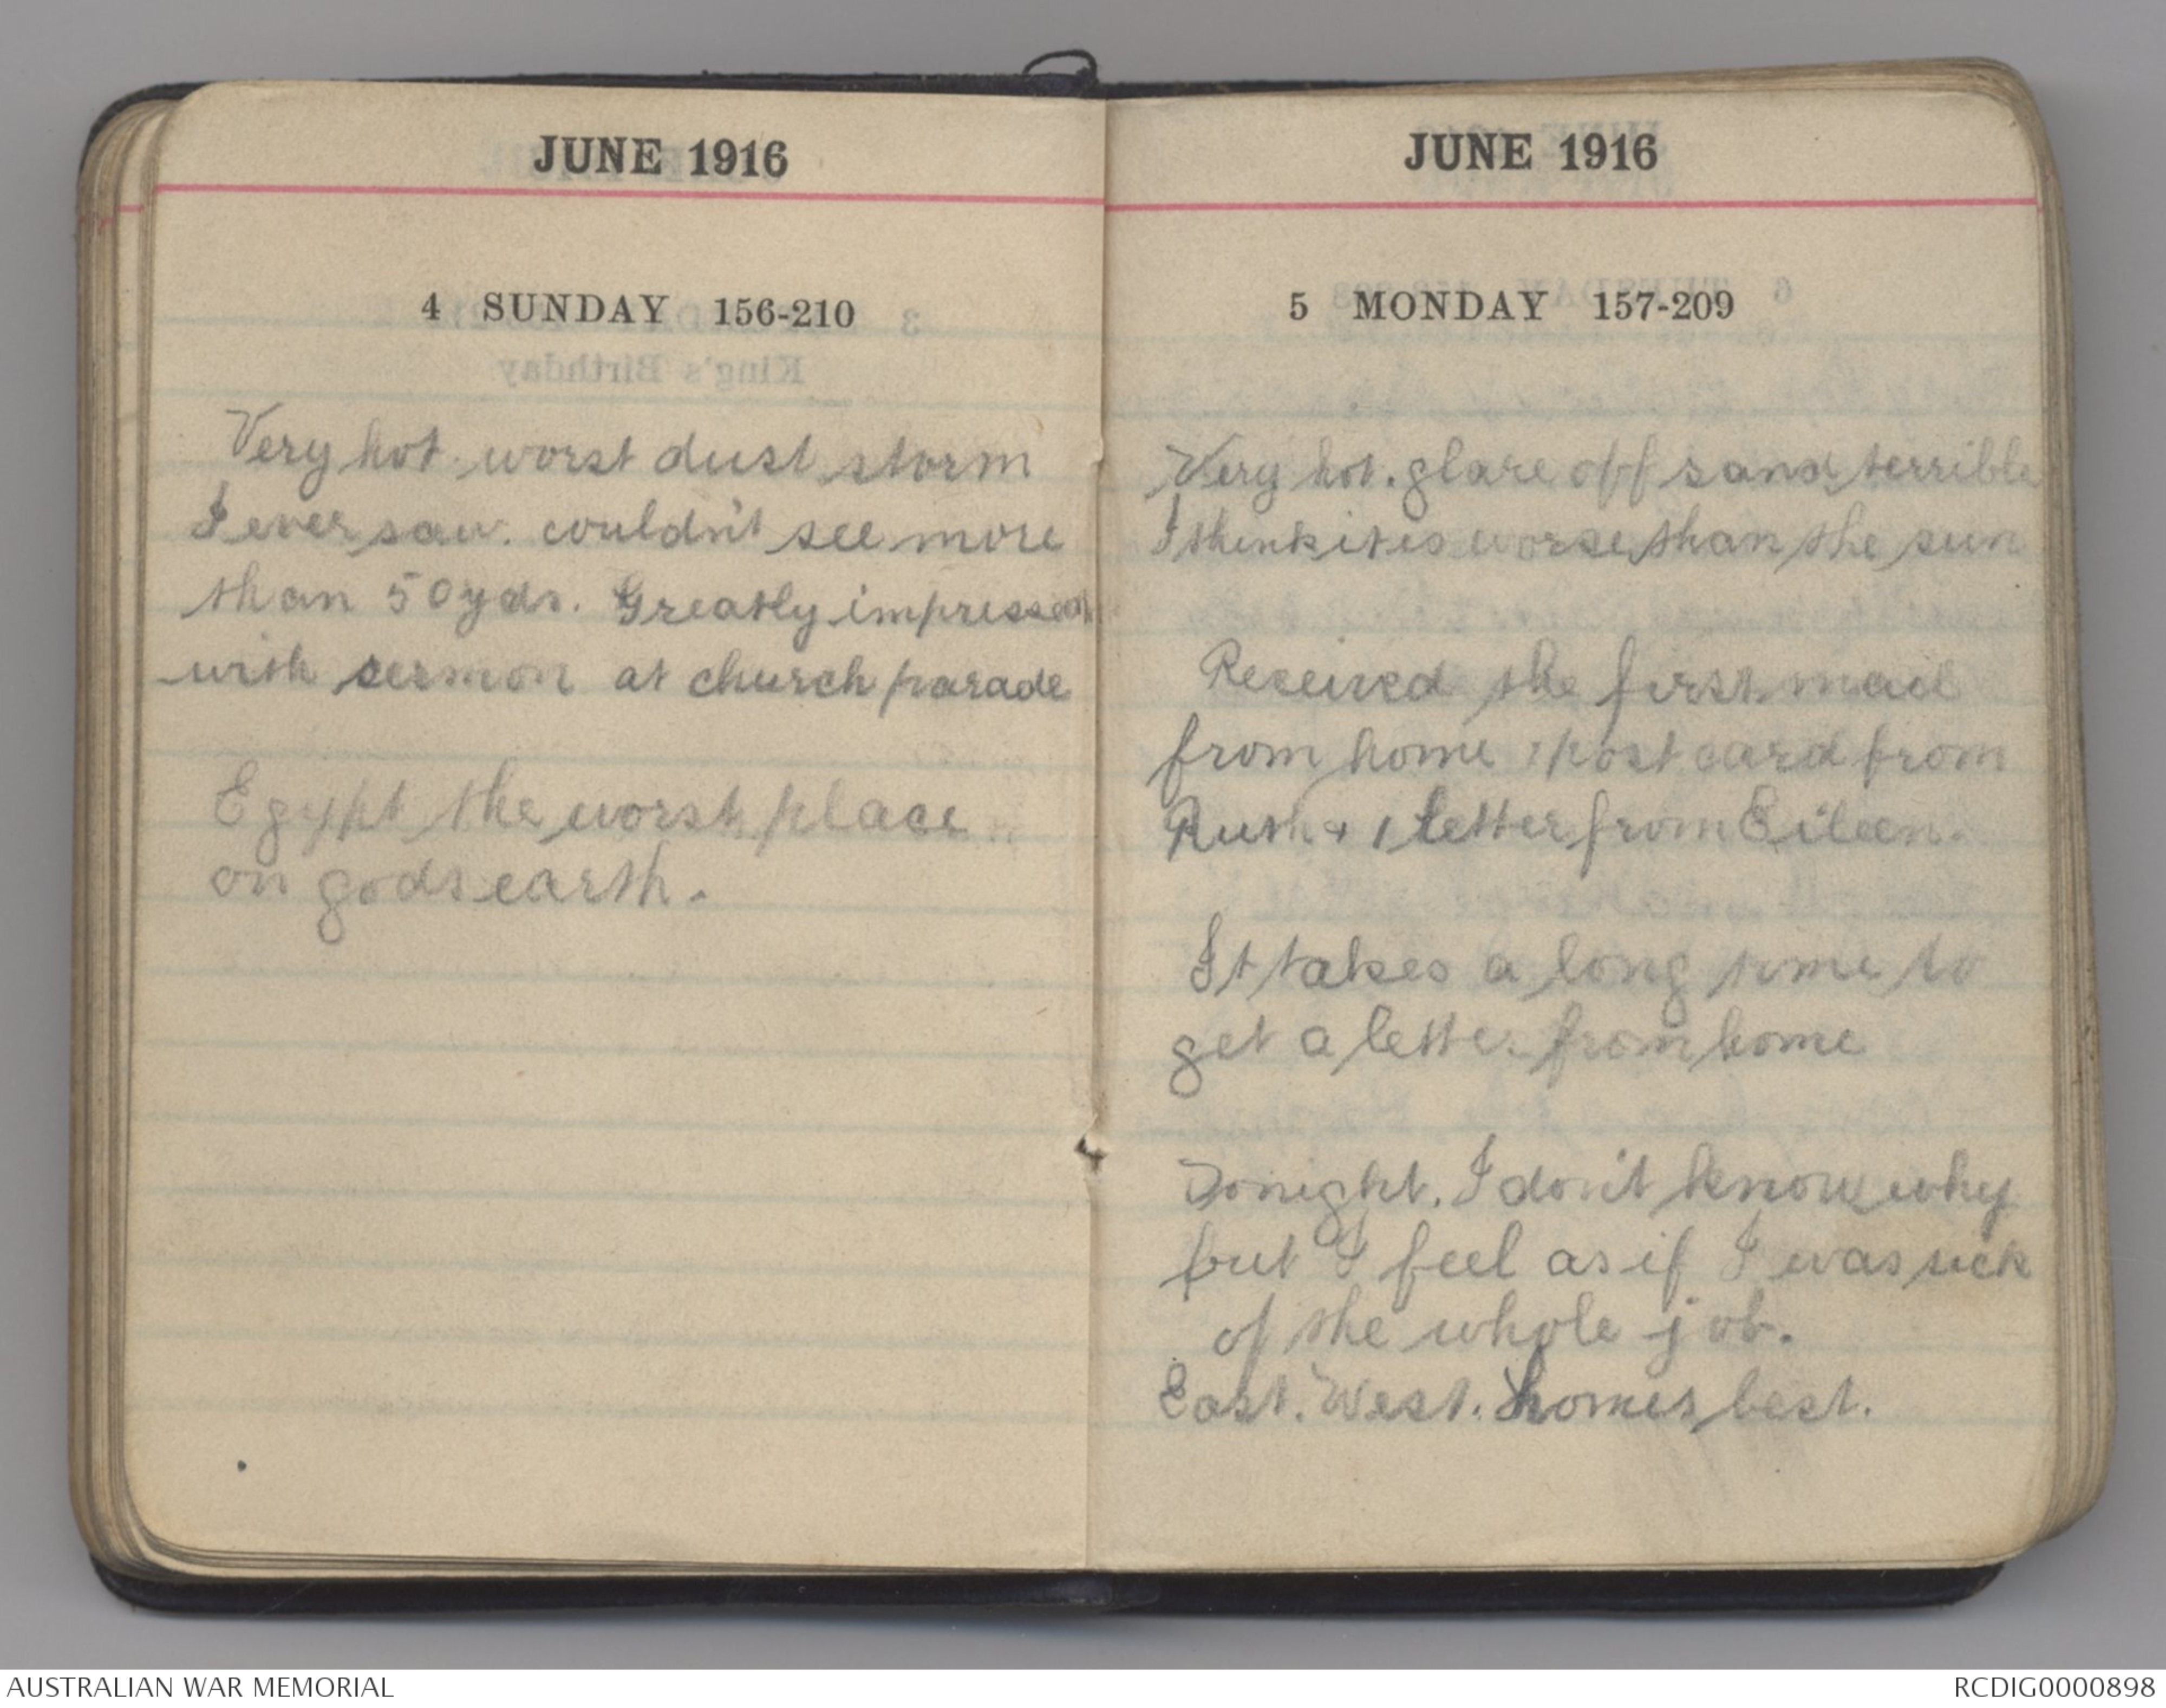 JUNE 1916
4 SUNDAY 156-210
Very hot. worst dust storm
I ever saw. couldn't see more
than 50 yds. Greatly impressed
with sermon at church parade
Egypt the worst place
on gods earth.
JUNE 1916
5 MONDAY 157-209
Very hot. glare off sand terrible
I think it is worse than the sun
Received the first mail
from home 1 post card from
Ruth & 1 letter from Eileen.
It takes a long time to
get a letter from home
Tonight. I don't know why
but I feel as if I was sick
of the whole job.
East. West. homes best.
AUSTRALIAN WAR MEMORIAL
RCDIG0000898